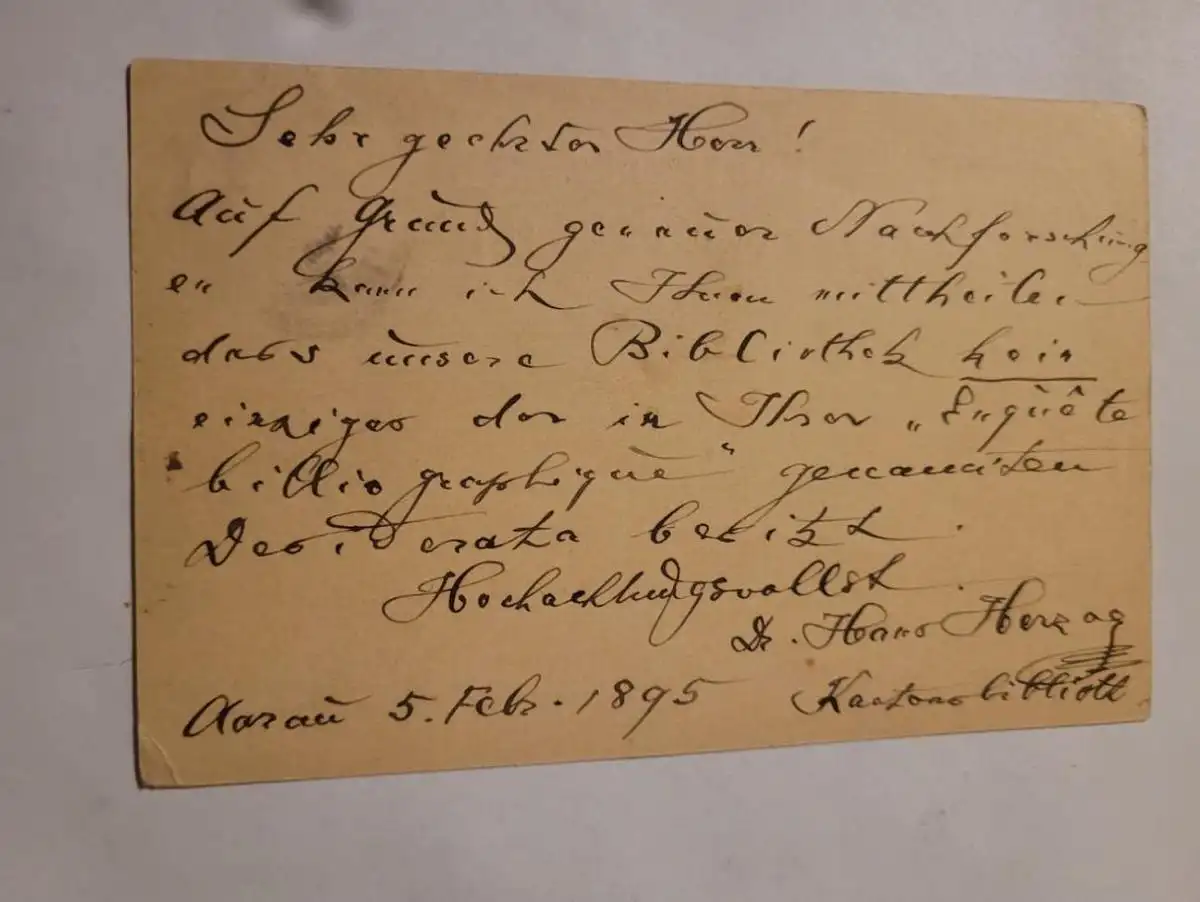 Sehr geehrter Herr!
Auf Grund genauer Nachforschung
en kann ich Ihnen mittheilen
dass unsere Bibliothek kein
einziges der in Ihrer „Enquête
bibliographique" genannten
Desiderata besitzt.
Hochachtungsvollst.
Dr. Hans Herzog
Kantonsbiblioth.
Aarau 5. Febr. 1895